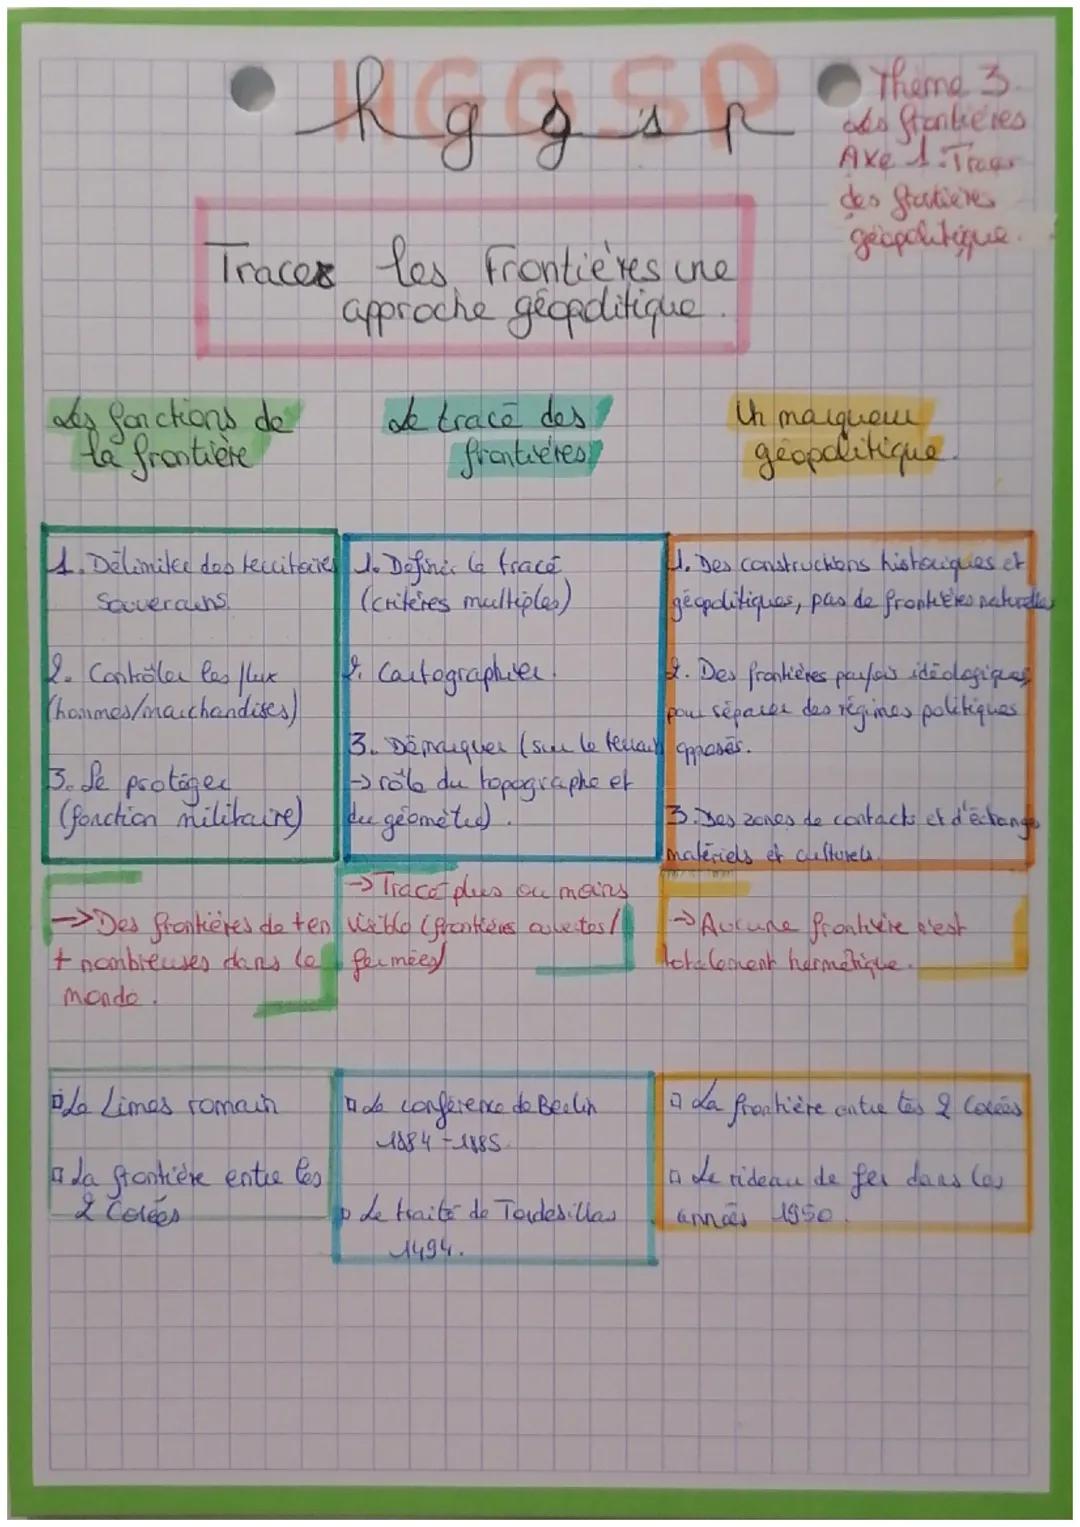 HGGSP
hggsp
Thème 3.
Les frontières
Axe 1 : Tracer
des frontières
géopolitique.
Tracer les Frontières une
approche géopolitique.
Les fonctions de
la frontière
Le tracé des
frontières
Un marqueur
géopolitique.
1. Délimiter des territoires
souverains.
2. Contrôler les flux
(hommes/marchandises)
3. Se protéger
(fonction militaire)
1. Définir le tracé
(critères multiples)
2. Cartographier.
3. Démarquer (sur le terrain
→ rôle du topographe et
du géomètre).
1. Des constructions historiques et
géopolitiques, pas de frontières naturelles
2. Des frontières parfois idéologiques,
pour séparer des régimes politiques
opposés.
3. Des zones de contacts et d'échange
matériels et culturels.
→ Des frontières de + en
+ nombreuses dans le
monde.
→ Tracé plus ou moins
visible (frontières ouvertes/
fermées)
→ Aucune frontière n'est
totalement hermétique.
Le Limes romain
La frontière entre les
2 Corées
La conférence de Berlin
1884-1885.
Le traité de Tordesillas
1494.
La frontière entre les 2 Corées
Le rideau de fer dans les
années 1950.